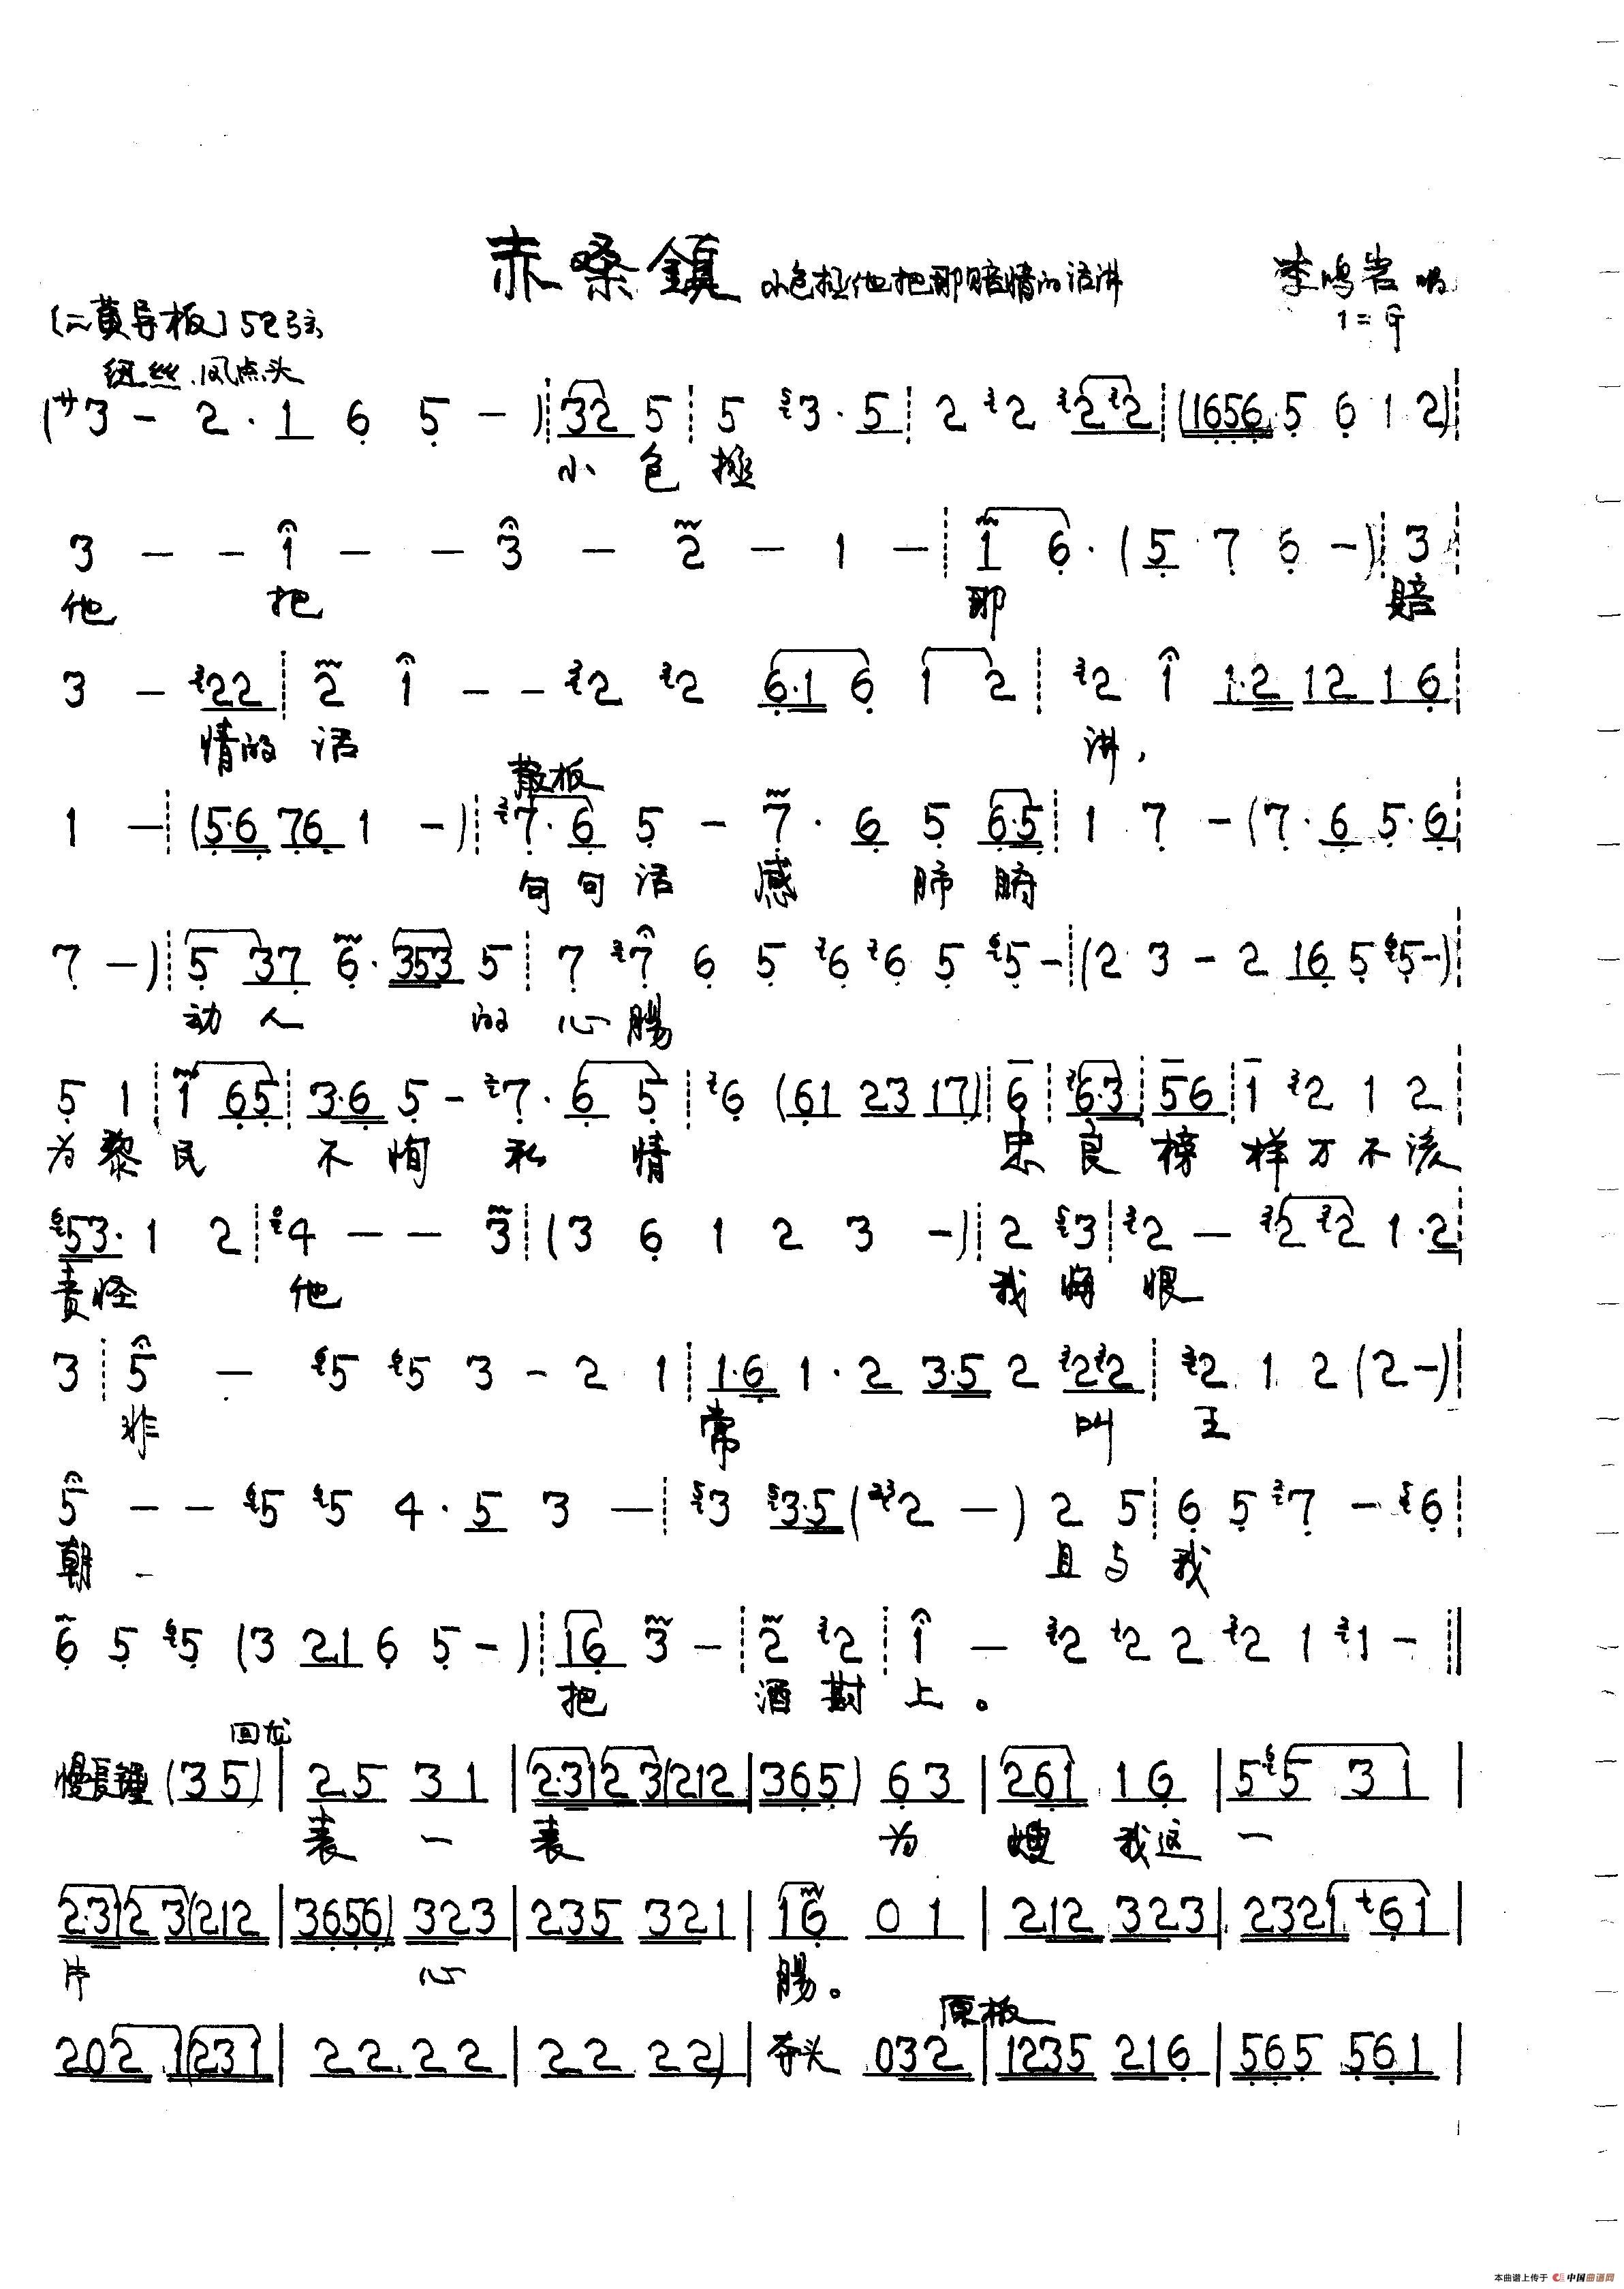 赤桑鎮 小包拯他把那赔情的话讲 李鸣岩 唱
〔二黄导板〕52弦 1=G
纽丝.风点头
(サ3 - 2 · 1 6 5 - ) 32 5 5 3 · 5 2 2 2 2 (1656 5 6 1 2)
小 包 拯
3 - - 1 - - 3 - 2 - 1 - 1 6 · (5 7 6 -) 3
他 把 那 赔
3 - 22 2 1 - - 2 2 6·1 6 1 2 2 1 1·2 12 16
情的 话 讲,
散板
1 - (5·6 76 1 -) 7·6 5 - 7 · 6 5 6·5 1 7 - (7 · 6 5·6
句 句 话 感 肺 腑
7 -) 5 37 6·353 5 7 7 6 5 6 6 5 5 - (2 3 - 2 16 5 5 -)
动 人 的 心 腸
5 1 1 65 3·6 5 - 7 · 6 5 6 (61 23 17) 6 6·3 56 1 2 1 2
为 黎 民 不 恂 私 情 忠 良 榜 样 万 不 该
53· 1 2 4 - - 3 (3 6 1 2 3 -) 2 3 2 - 2 2 1·2
责怪 他 我 悔 恨
3 5 - 5 5 3 - 2 1 1·6 1 · 2 3·5 2 22 2 1 2 (2 -)
非 常 叫 王
5 - - 5 5 4 · 5 3 - 3 3·5 (2 -) 2 5 6 5 7 - 6
朝 - 且 与 我
6 5 5 (3 21 6 5 -) 16 3 - 2 2 1 - 2 2 2 2 1 1 -
把 酒 斟 上 。
回龙
慢長錘 (35) | 25 31 | 2·312 3(212 | 365) 63 | 261 16 | 55 31 |
表 一 表 为 嫂 我这 一
2·312 3(212 | 3656) 323 | 235 321 | 16 01 | 212 323 | 2321 61 |
片 心 腸。
原板
202 1(231 | 22 22 | 22 22) | 夺头 032 | 1235 216 | 565 561 |
本曲谱上传于 中国曲谱网